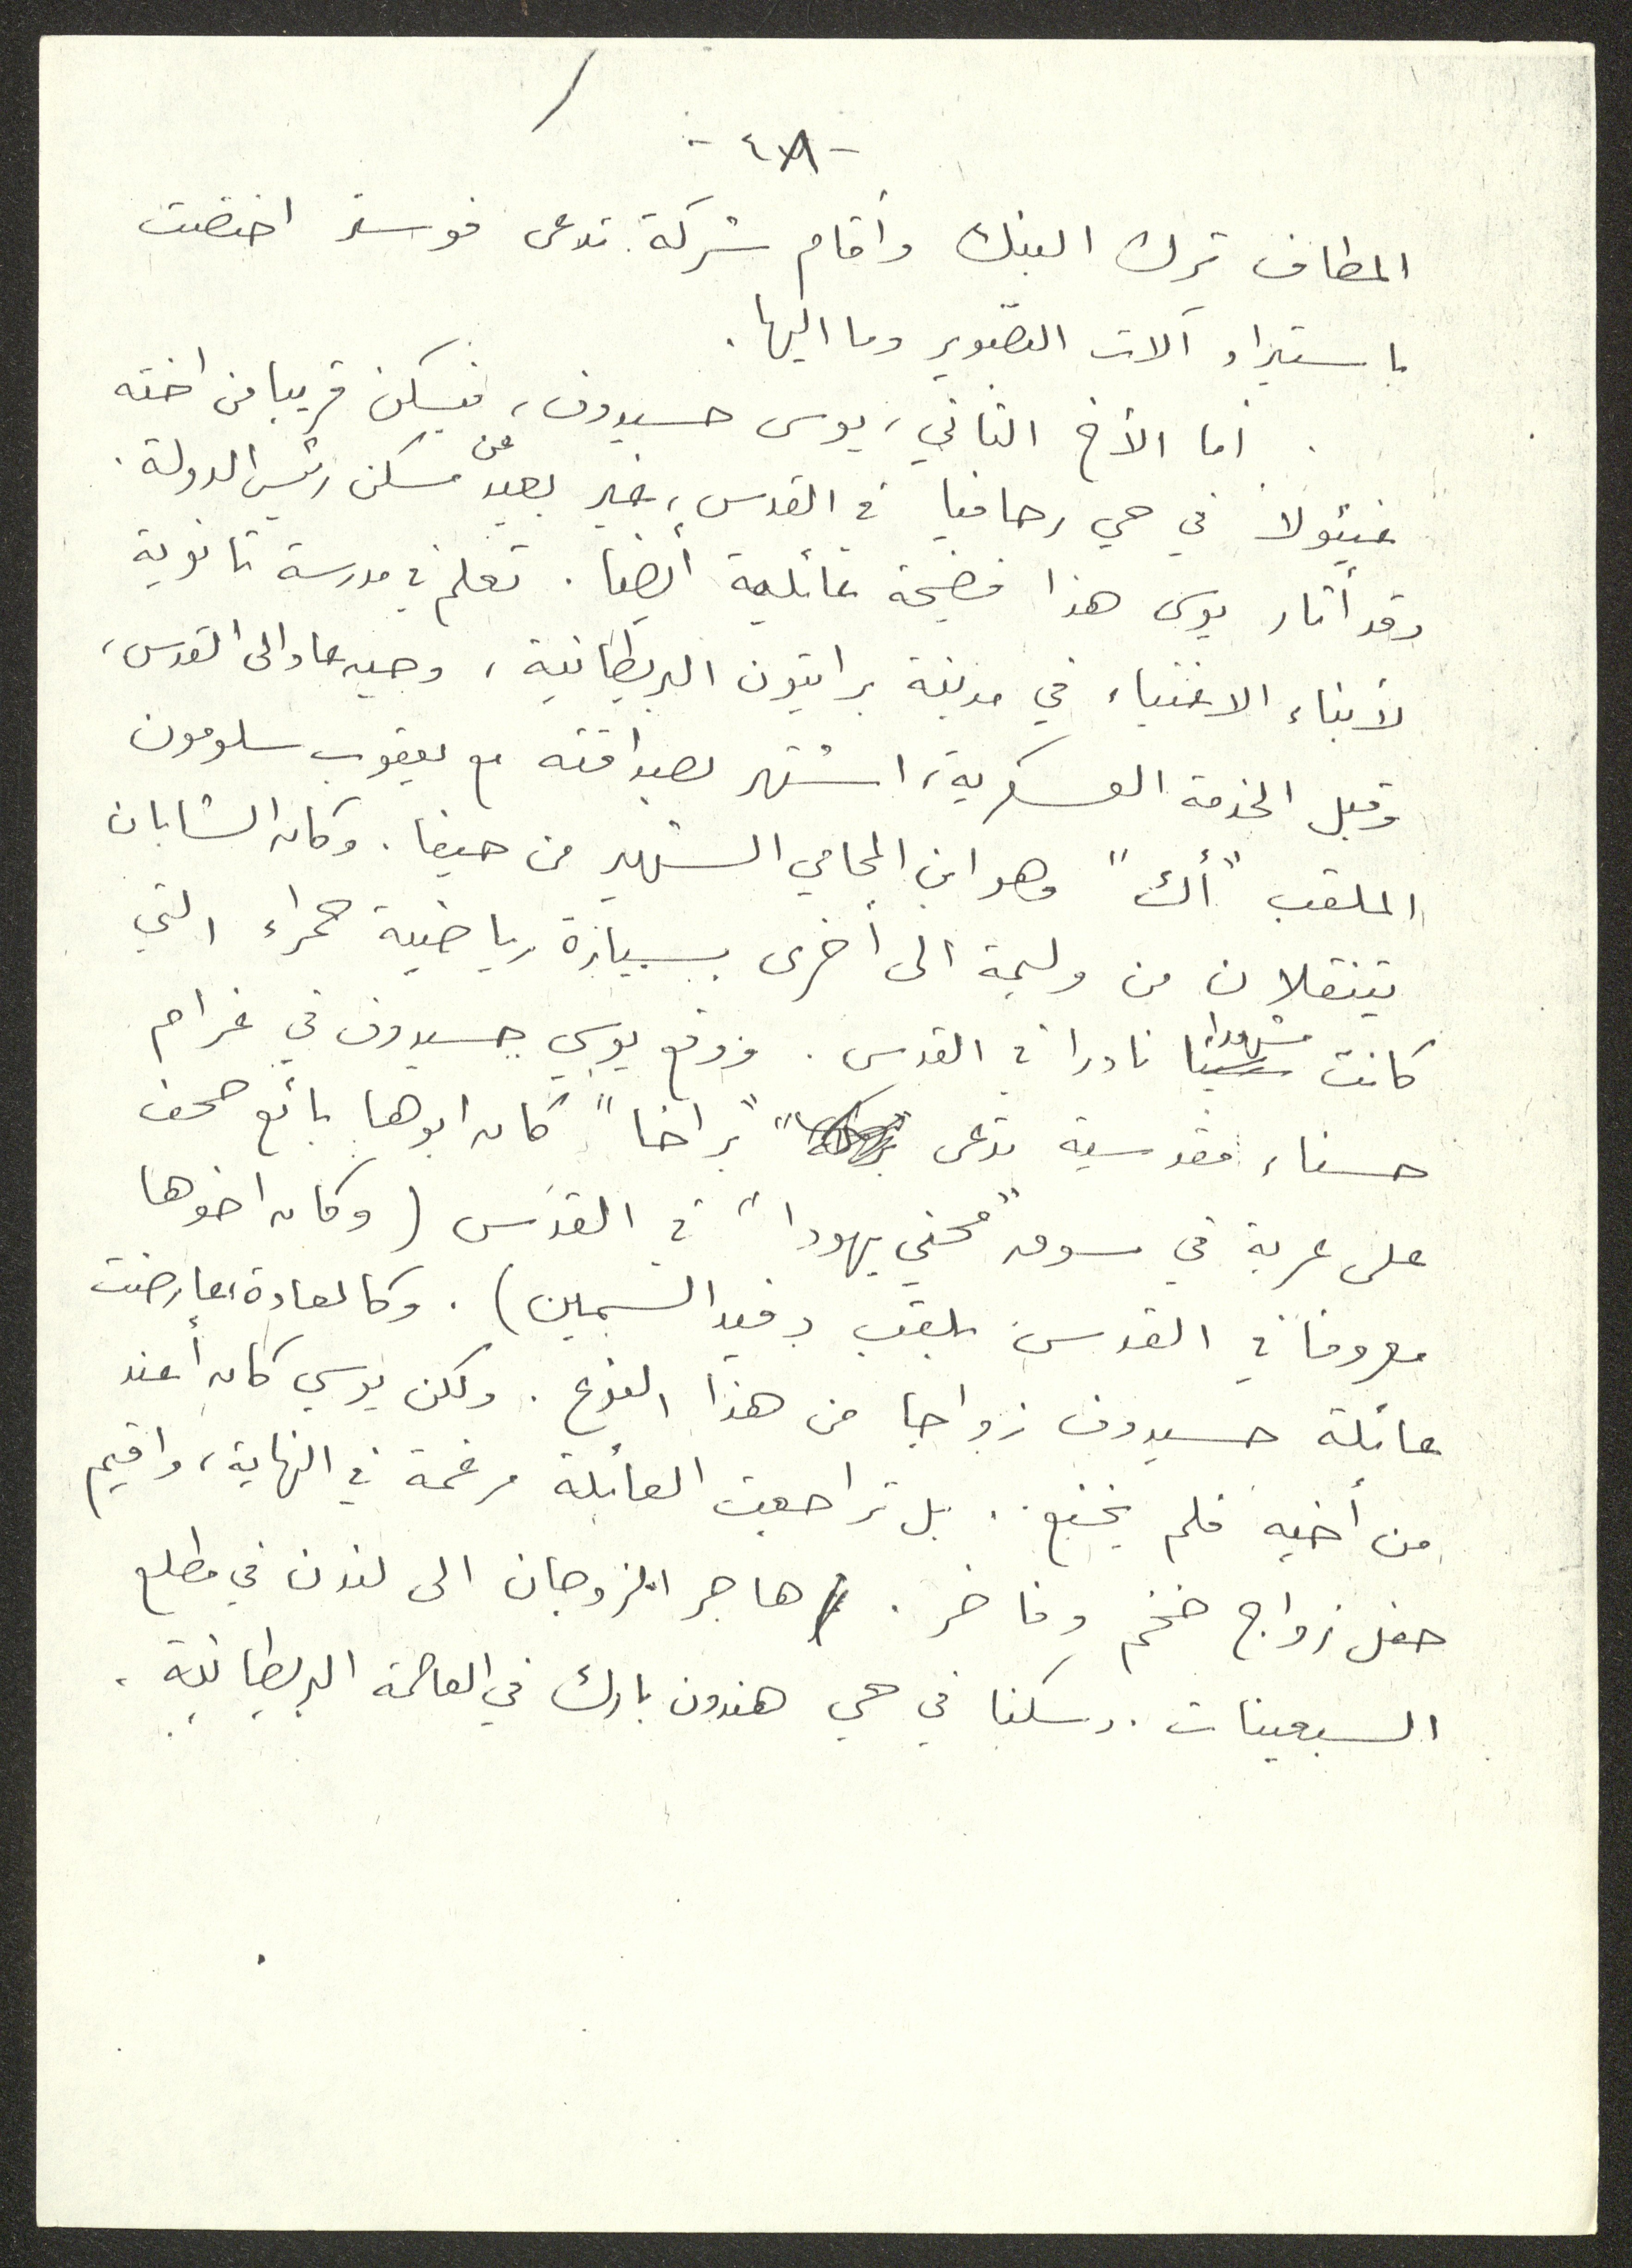 - ٤٨ -
المطاف ترك البنك وأقام شركة تدعى فوستر اختصت
باستيراد آلات التصوير وما اليها.
أما الأخ الثاني، يوسي حسيدوف، فيسكن قريبا من اخته
فيئولا في حي رحافيا في القدس، غير بعيد عن مسكن رئيس الدولة.
وقد أثار يوسي هذا فضيحة عائلية أيضا. تعلم في مدرسة ثانوية
لأبناء الاغنياء في مدينة برايتون البريطانية، وحين عاد الى القدس،
وقبل الخدمة العسكرية، اشتهر بصداقته مع يعقوب سلومون
الملقب "أك" وهو ابن المحامي الشهير من حيفا. وكان الشابان
يتنقلان من وليمة الى أخرى بسيارة رياضية حمراء التي
كانت مشهدا نادرا في القدس. ووقع يوسي حسيدوف في غرام
حسناء مقدسية تدعى "براخا" كان ابوها بائع صحف
على عربة في سوق "محني يهودا" في القدس (وكان اخوها
معروفا في القدس بلقب دفيد السمين). وكالعادة، عارضت
عائلة حسيدوف زواجا من هذا النوع. ولكن يوسي كان أعند
من أخيه فلم يخنع.. بل تراجعت العائلة مرغمة في النهاية، واقيم
حفل زواج ضخم وفاخر. هاجر الزوجان الى لندن في مطلع
السبعينات. وسكنا في حي هندون بارك في العاصمة البريطانية.